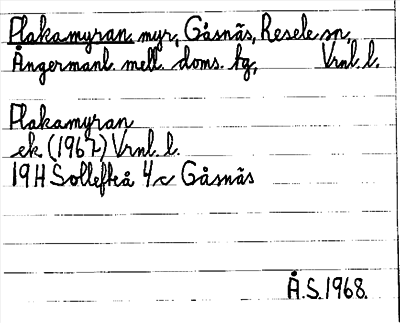 Plakamyran, myr, Gåsnäs, Resele sn,
Ångermanl. mell. doms. hg, Vrnl. l.
Plakamyran
ek (1967) Vrnl. l.
19H Sollefteå 4c Gåsnäs
Å.S. 1968.